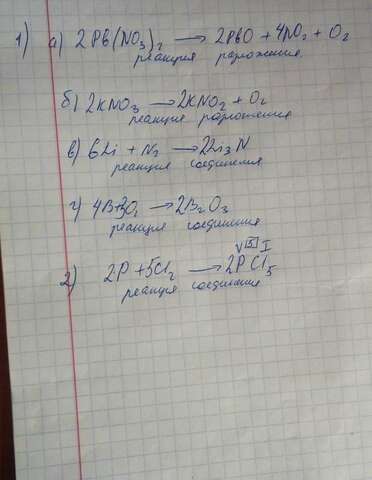 1) а) 2Pb(NO₃)₂ → 2PbO + 4NO₂ + O₂
реакция разложения
б) 2KNO₃ → 2KNO₂ + O₂
реакция разложения
в) 6Li + N₂ → 2Li₃N
реакция соединения
г) 4B+3O₂ → 2B₂O₃
реакция соединения
V 5 I
2) 2P + 5Cl₂ → 2PCl₅
реакция соединения